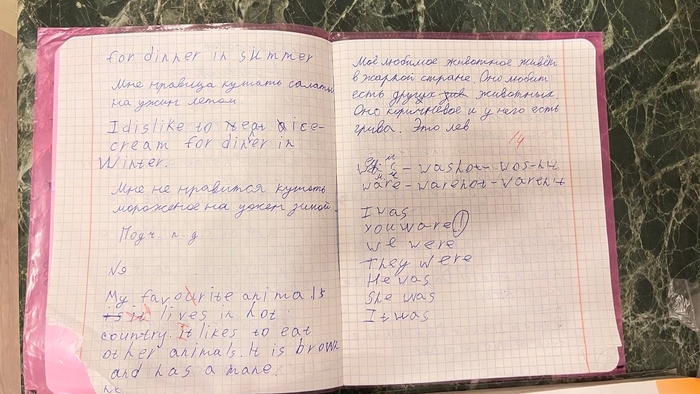 for dinner in summer
Мне нравица кушать салаты
на ужин летом
I dislike to eat ice-
cream for diner in
Winter.
Мне не нравится кушать
мороженое на ужен зимой.
Подч. п. д
№
My favourite animals
it lives in hot
country. It likes to eat
other animals. It is brown
and has a mane.
Моё любимое животное живёт
в жаркой стране. Оно любит
есть других животных.
Оно коричневое и у него есть
грива. Это лев
14
was – wasnot – wos-nt
ware – warenot – warent
I was
you ware
we were
They were
He was
She was
It was